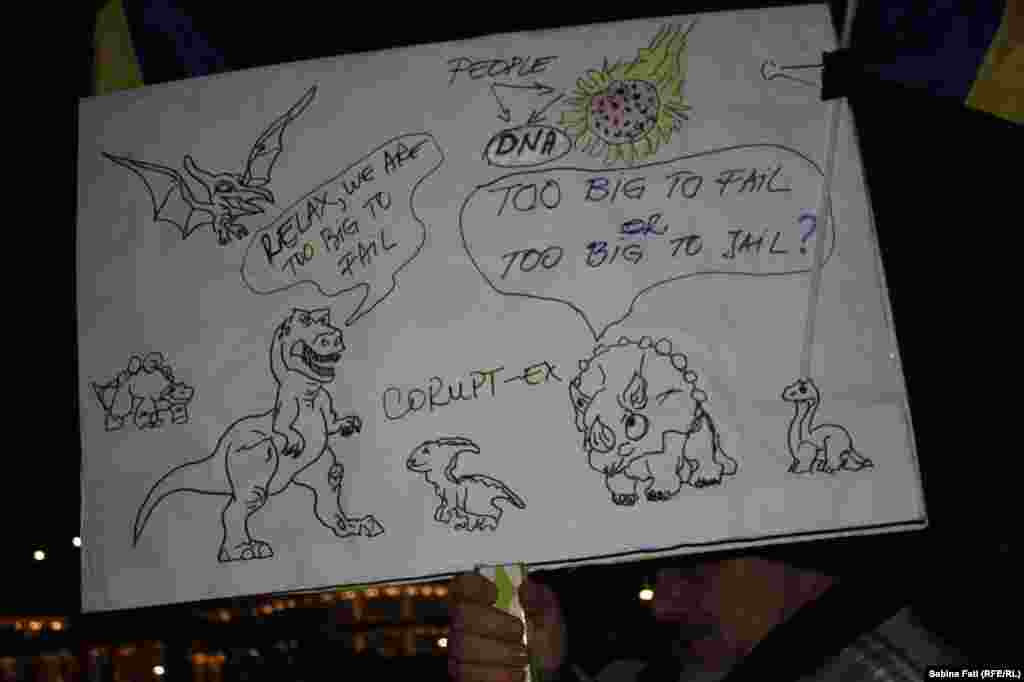 PEOPLE
DNA
RELAX, WE ARE
TOO BIG TO
FAIL
TOO BIG TO FAIL
OR
TOO BIG TO JAIL?
CORUPT-EX
Sabina Fati (RFE/RL)